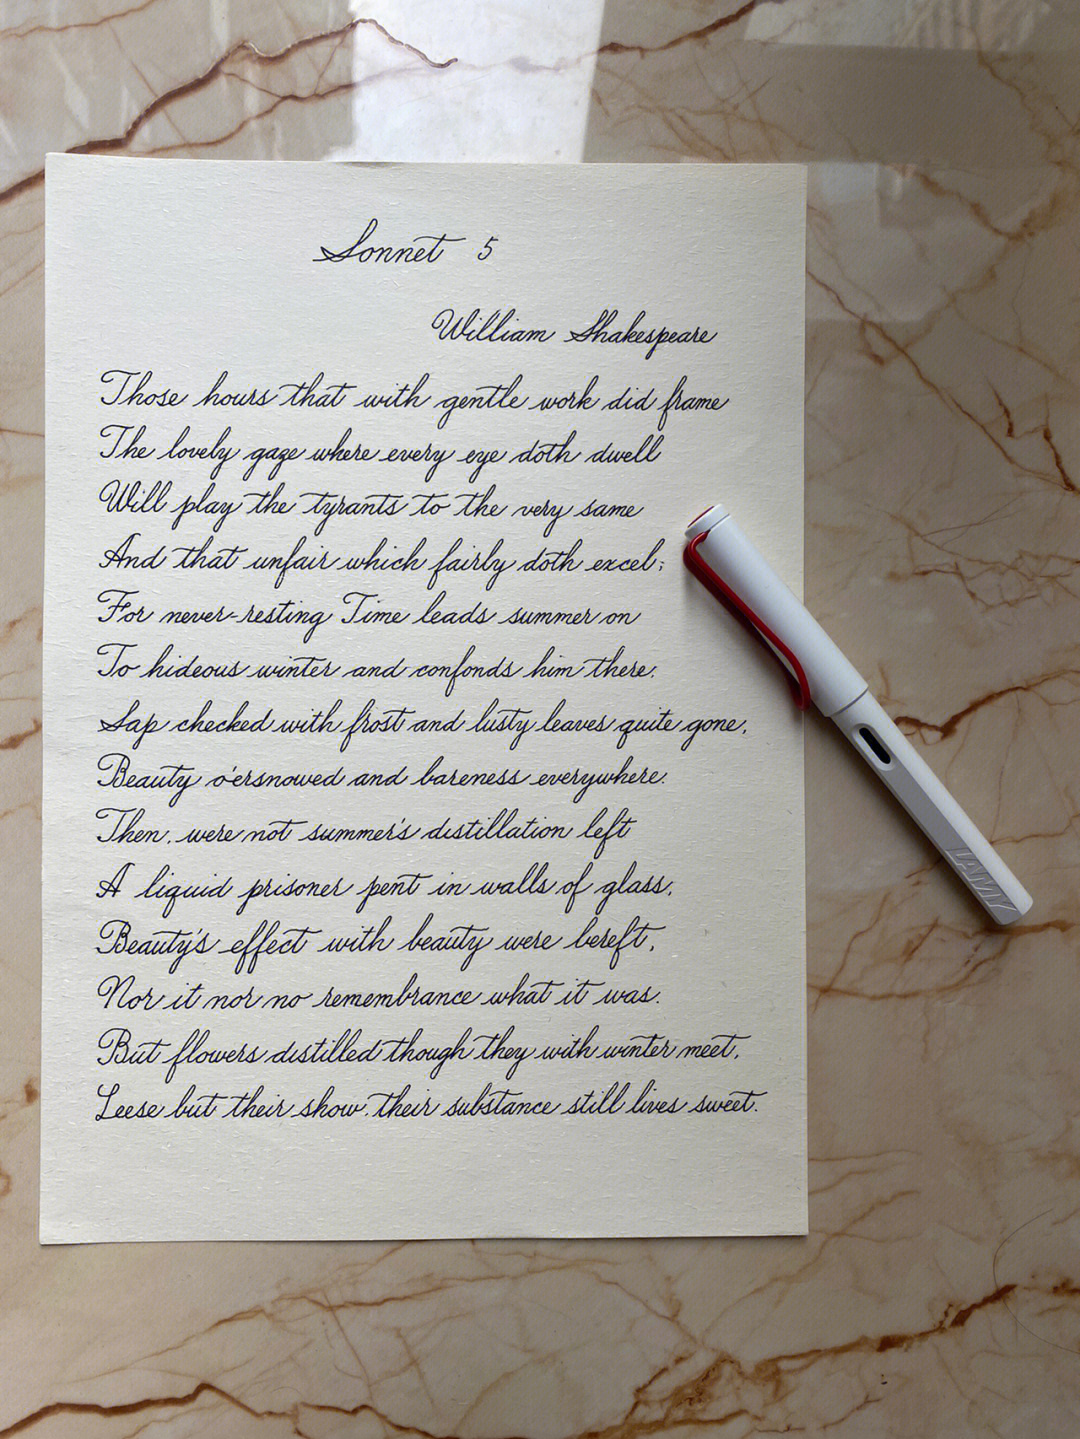 Sonnet 5
William Shakespeare
Those hours that with gentle work did frame
The lovely gaze where every eye doth dwell
Will play the tyrants to the very same
And that unfair which fairly doth excel;
For never-resting Time leads summer on
To hideous winter and confonds him there.
Sap checked with frost and lusty leaves quite gone,
Beauty o'ersnowed and bareness everywhere.
Then, were not summer's distillation left
A liquid prisoner pent in walls of glass,
Beauty's effect with beauty were bereft,
Nor it nor no remembrance what it was.
But flowers distilled though they with winter meet,
Leese but their show, their substance still lives sweet.
LAMY